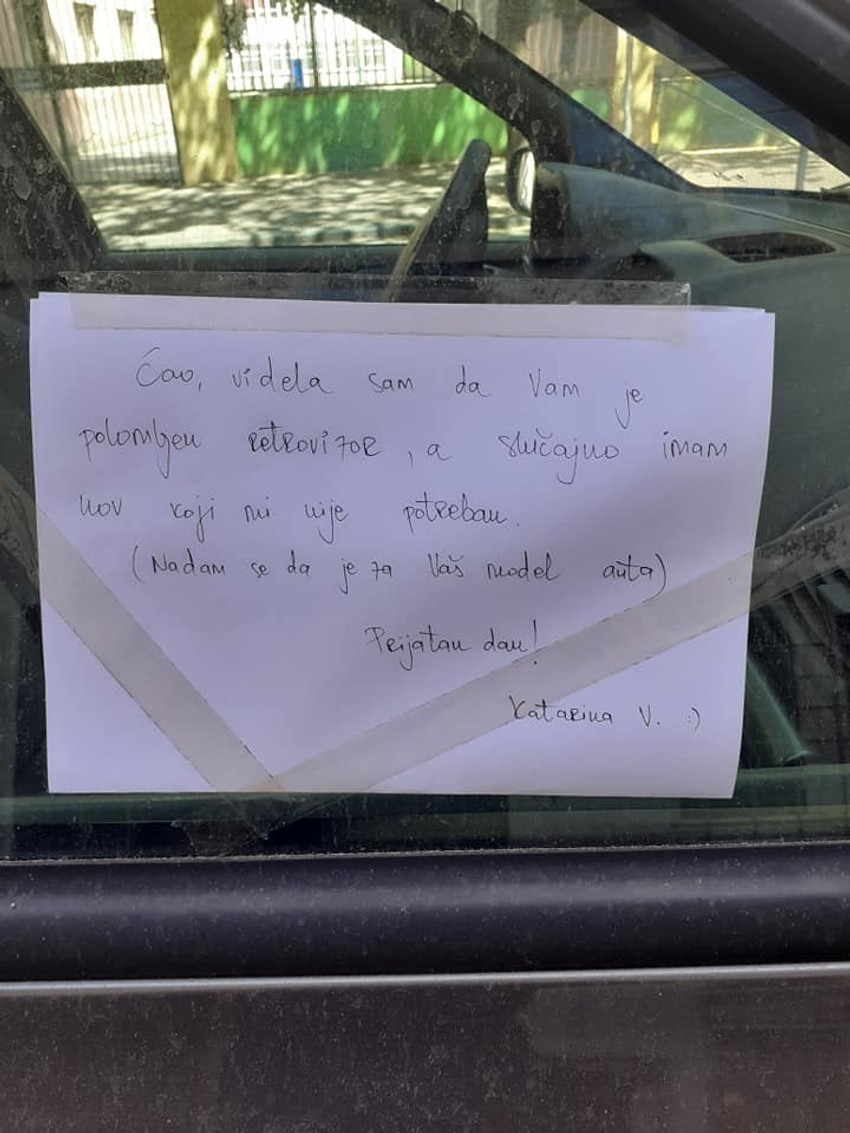 Ćao, videla sam da Vam je
polomljen retrovizor, a slučajno imam
nov koji mi nije potreban.
(Nadam se da je za Vaš model auta)
Prijatan dan!
Katarina V. :)